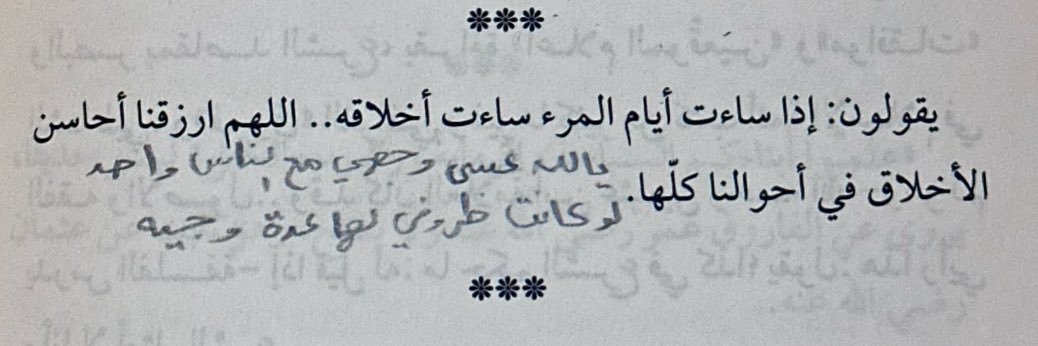 ***
يقولون: إذا ساءت أيام المرء ساءت أخلاقه.. اللهم ارزقنا أحاسن
يالله عسى وجهي مع الناس واحد
الأخلاق في أحوالنا كلّها.
لو كانت ظروفي لها عدة وجيه
***